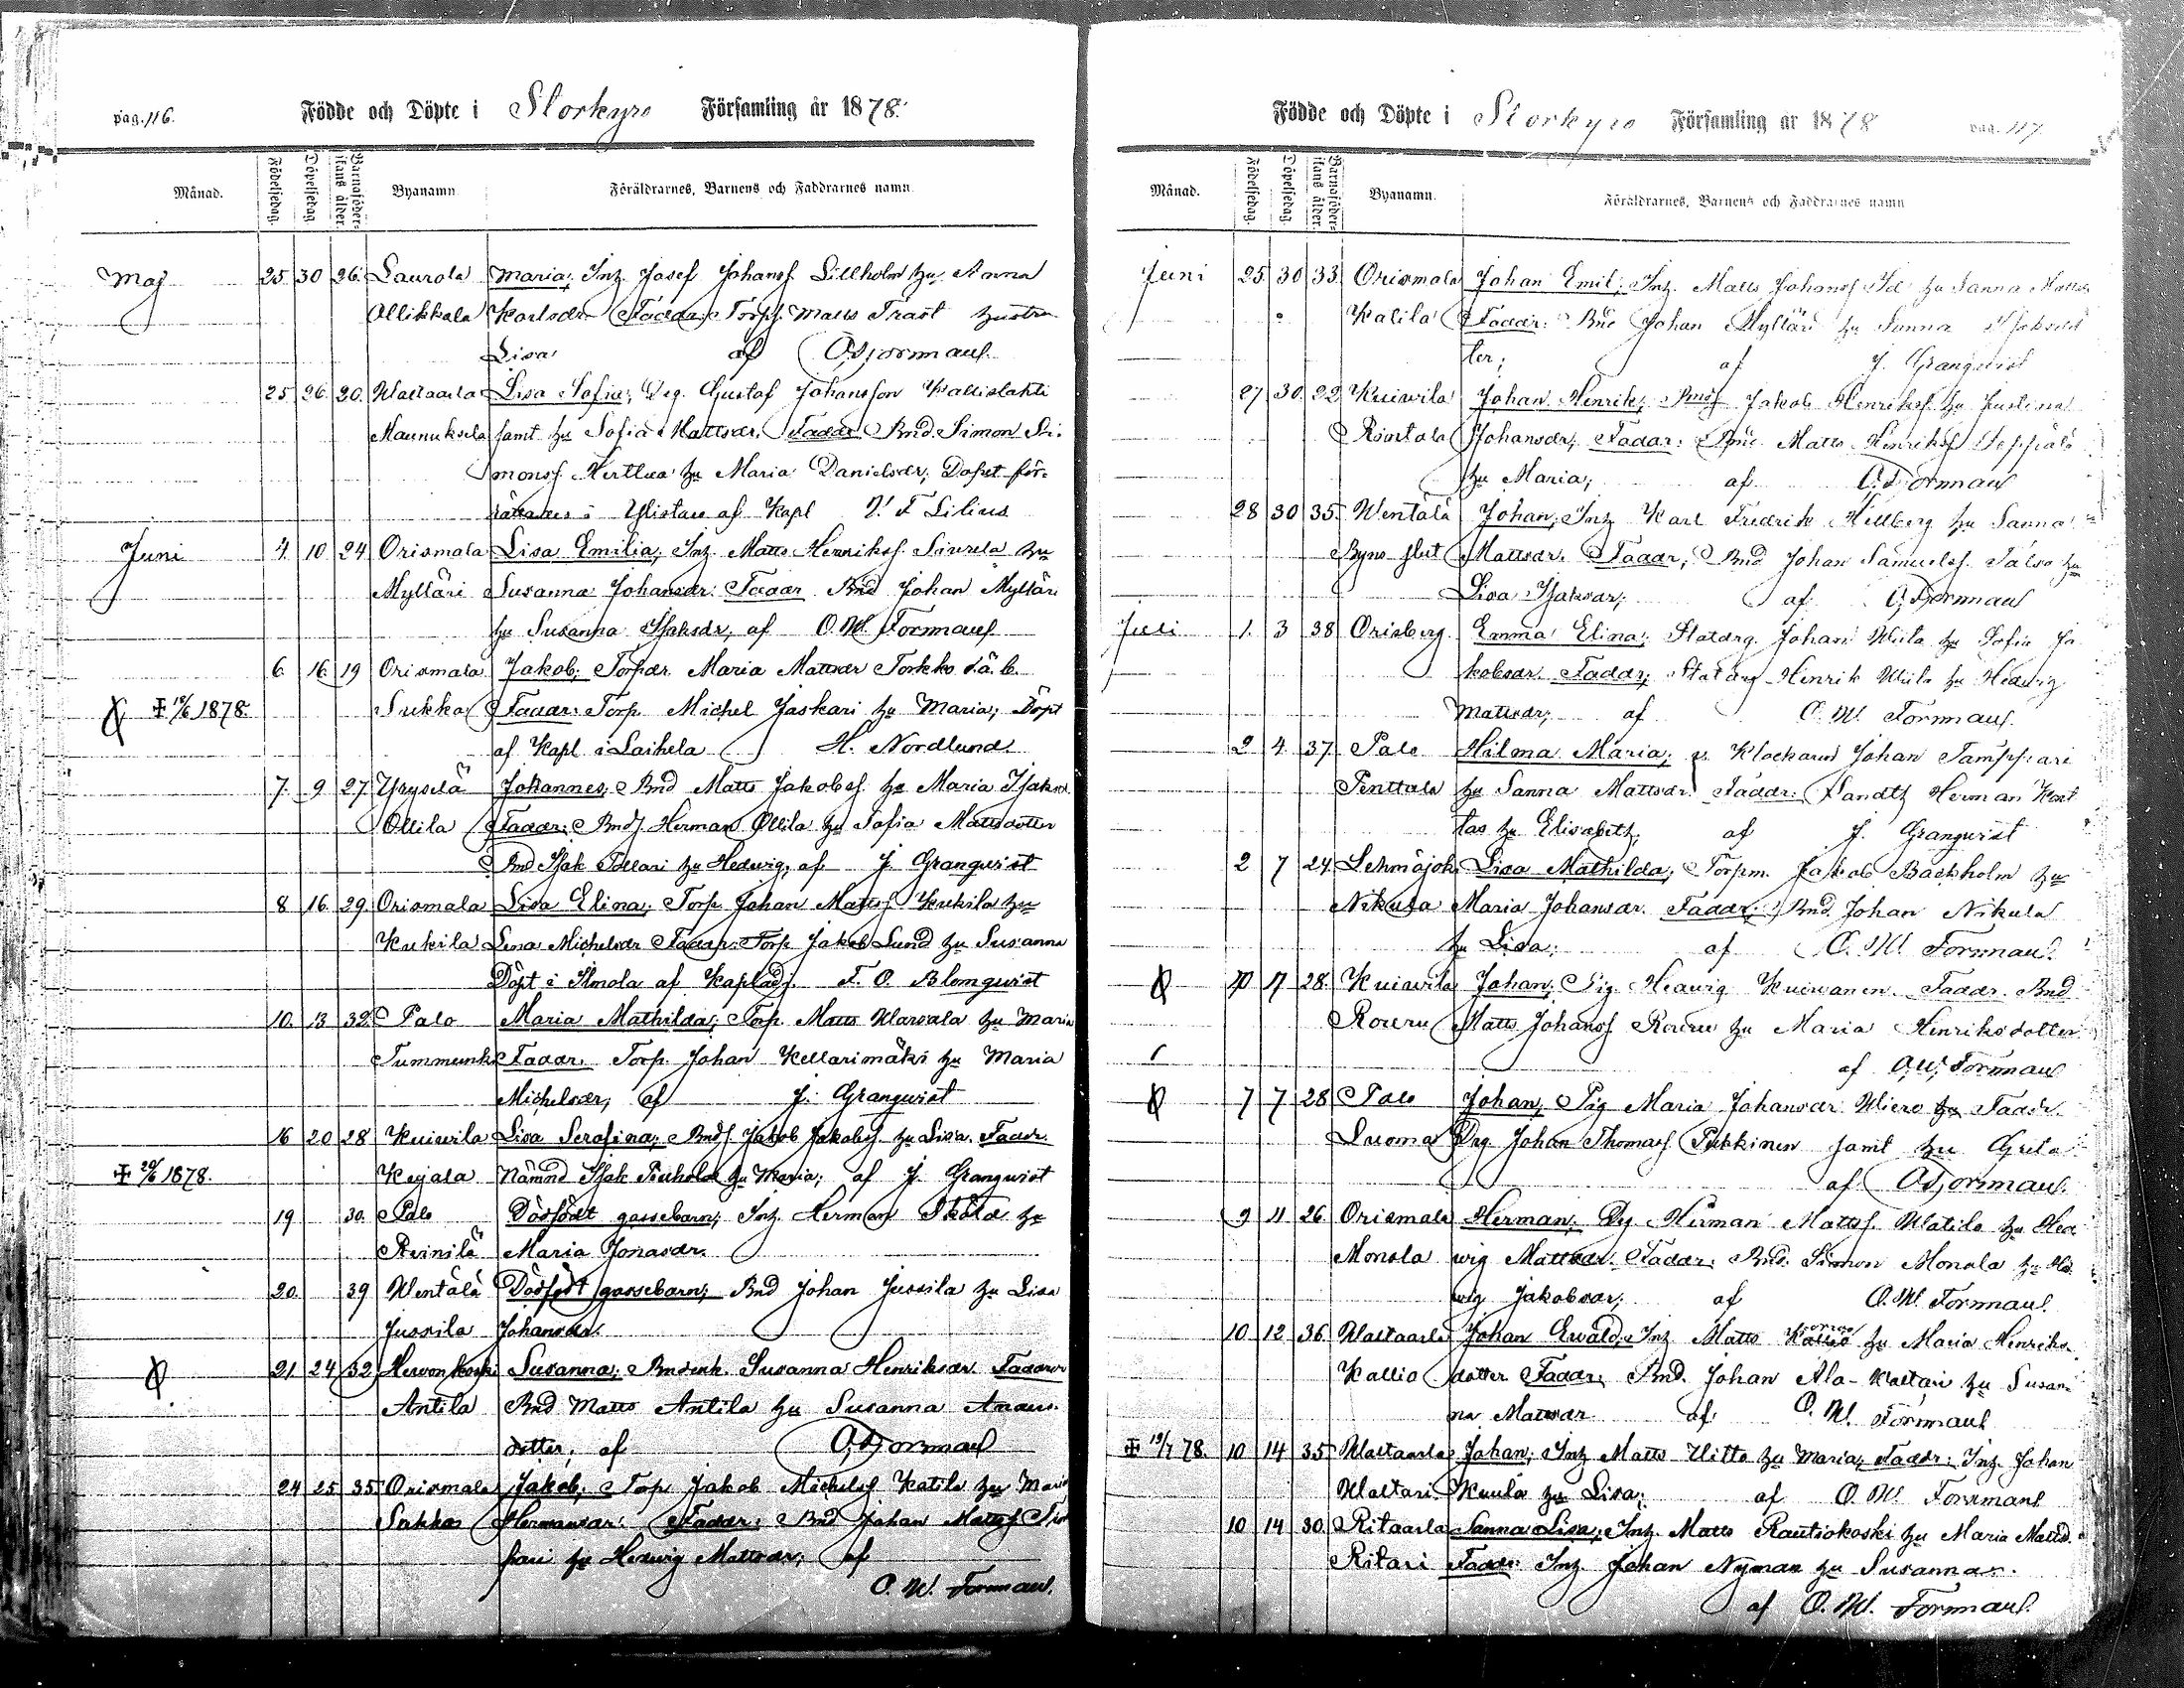 pag. 116.
Födde och Döpte i Storkyro Församling år 1878.
Månad. Födelsedag. Döpelsedag. Barnaföderskans ålder. Byanamn. Föräldrarnes, Barnens och Faddrarnes namn.
Maj 25 30 26. Laurola Maria; Inh. Josef Johansf. Lillholm hu Anna
Ollikkala Karlsdr. Faddr; Torp. Matts Trast hustru
Lisa af O. Forsman.
25 26 20. Waltaarla Lisa Sofia; Drg. Gustaf Johansson Kallislahti
Maunuksela samt hu Sofia Mattsdr. Faddr Bnd. Simon Si-
monsf. Herttua hu Maria Danielsdr; Döpt för-
i Ylistaro af Kapl F Lilius
Juni 4. 10 24 Orismala Lisa Emilia; Inh. Matts Henriksf. hu
Mylläri Susanna Johansdr. Faddr Bnd Johan Mylläri
hu Susanna Isaksdr, af O. W. Forsman
6. 16 19 Orismala Jakob; Torpdr. Maria Mattsdr Torkko o. ä. b.
18/6 1878. Sukka Faddr: Torp. Michel Jaskari hu Maria; Döpt
af Kapl i Laihela H. Nordlund
7. 9 27 Yryselä Johannes; Bnd Matts Jakobsf. hu Maria Isaksd.
Ollila Faddr: Bndsf Herman Ollila hu Sofia Mattsdotter
Bnd Isak Tollari hu Hedwig, af J. Granqvist
8 16 29. Orismala Lisa Elina; Torp Johan Mattsf. Kukila hu
Kukila Lisa Michelsdr Faddr: Torp Jakob Lund hu Susanna
Döpt i Ilmola af Kapladj. F. O. Blomqvist
10. 13 32 Palo Maria Mathilda; Torp. Matts Warsala hu Maria
Tummunki Faddr. Torp. Johan Kellarimäki hu Maria
Michelsdr, af J. Granqvist
16 20 28 Kuiwila Lisa Serafina; Bndf. Jakob Jakobsf. hu Lisa. Faddr.
20/6 1878. Kejala Nämnd Isak hu Maria; af J. Granqvist
19 30. Palo Dödfödt gossebarn; Inh. Herman Sköld hu
Reinilä Maria Jonasdr.
20. 39 Wentälä Dödfödt gossebarn; Bnd Johan Jussila hu Lisa
Jussila Johansdr.
21. 24 32 Herwonkoski Susanna; Bndenk. Susanna Henriksdr. Faddrar
Antila Bnd Matts Antila hu Susanna Anders-
dotter; af O. Forsman
24 25 35 Orismala Jakob; Torp Jakob Michelsf Katila hu Maria
Sukka Hermansdr. Faddr: Bnd Johan Mattsf
hu Hedwig Mattsdr; af
O. W. Forsman.
pag. 117.
Födde och Döpte i Storkyro Församling år 1878
Månad. Födelsedag. Döpelsedag. Barnaföderskans ålder. Byanamn. Föräldrarnes, Barnens och Faddrarnes namn
Juni 25 30 33 Orismala Johan Emil; Inh. Matts Johansf. hu Sanna Mattsdr
Kalila Faddr: Bnd Johan Mylläri hu Sanna Isaksdot
ter; af J. Granqvist
27 30. 22 Kuiwila Johan Henrik; Bndsf Jakob Henriksf. hu Justina
Rintala Johansdr; Faddr: Bnd Matts Henriksf Seppälä
hu Maria; af O. Forsman
28 30 35. Wentälä Johan; Inh Karl Fredrik Hellberg hu Sanna
Byns slut Mattsdr. Faddr; Bnd Johan Samuelsf. hu
Lisa Isaksdr; af O. Forsman
Juli 1. 3 38 Orisberg Emma Elina; Statdrg. Johan Wiita hu Sofia Ja-
kobsdr. Faddr; Statdrg Henrik hu Hedwig
Mattsdr; af O. W. Forsman.
2 4. 37. Palo Hilma Maria; Klockaren Johan Tamppari
Penttala hu Sanna Mattsdr. Faddr: Landth Herman
hu Elisabeth; af J. Granqvist
2 7 24. Lehmäjoki Lisa Mathilda; Torpm. Jakob Backholm hu
Nikula Maria Johansdr. Faddr: Bnd. Johan Nikula
hu Lisa; af O. W. Forsman.
28. Kuiwila Johan; Pig. Hedwig Kuiwanen. Faddr. Bnd
Roueru Matts Johansf Roueru hu Maria Henriksdotter
af O. W. Forsman
7 7 28 Palo Johan; Pig Maria Johansdr Wiero Faddr.
Luoma Drg Johan Thomasf Pukkinen samt hu Greta
af O. Forsman.
9 11 26. Orismala Herman; Dg Herman Mattsf. hu Hed-
Monola wig Mattsdr. Faddr: Bnd. Simon Monola hu Hed-
wig Jakobsdr; af O. W. Forsman.
10 12 36. Waltaarla Johan Ewald; Inh Matts hu Maria Henriks-
Kallio dotter Faddr: Bnd. Johan Ala-Waltari hu Susan-
na Mattsdr af O. W. Forsman
19/7 78. 10 14 35 Waltaarla Johan; Inh Matts Uitto hu Maria; Faddr: Inh. Johan
Waltari Kuula hu Lisa; af O. W. Forsman
10 14 30. Ritaarla Sanna Lisa; Inh. Matts Rautiokoski hu Maria Mattsd.
Ritari Faddr: Inh Johan Nyman hu Susanna.
af O. W. Forsman.